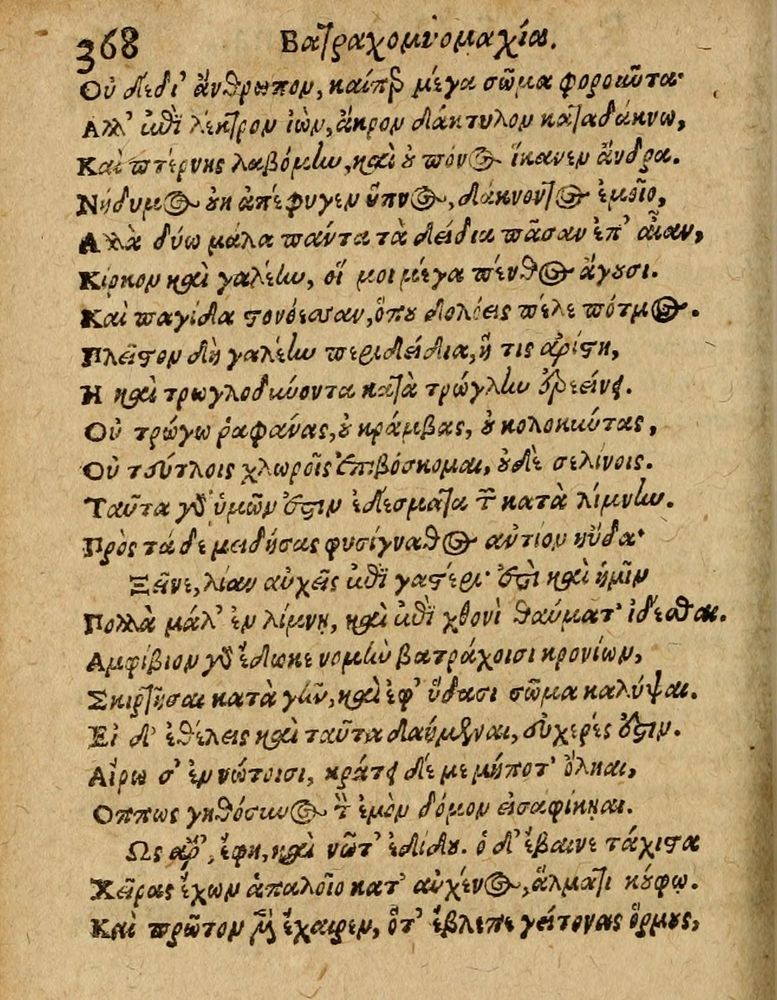 368 Βατραχομυομαχία.
Οὐ δέδι' ἄνθρωπον, καίπερ μέγα σῶμα φοροιῶτα·
Ἀλλ' ἐπὶ λέκτρον ἰὼν, ἄκρον δάκτυλον καταδάκνω,
Καὶ πτέρνης λαβόμην, καὶ οὐ πόνος ἵκανεν ἄνδρα.
Νήδυμος οὐκ ἀπέφυγεν ὕπνος, δάκνοντος ἐμοῖο,
Ἀλλὰ δύω μάλα πάντα τὰ δείδια πᾶσαν ἐπ' αἶαν,
Κίρκον καὶ γαλέην, οἵ μοι μέγα πένθος ἄγουσι.
Καὶ παγίδα στονόεσσαν, ὅπου δολόεις πέλε πότμος.
Πλεῖστον δὴ γαλέην περιδείδια, ἥ τις ἀρίστη,
Ἣ καὶ τρωγλοδύνοντα κατὰ τρώγλην ἐρεείνει.
Οὐ τρώγω ῥαφάνας, οὐ κράμβας, οὐ κολοκιώτας,
Οὐ τσύτλοις χλωροῖς ἐπιβόσκομαι, οὐδὲ σελίνοις.
Ταῦτα γὰρ ὑμῶν ἐστιν ἐδέσματα τῶν κατὰ λίμνην.
Πρὸς τάδε μειδήσας φυσίγναθος αὐτίον ηὔδα·
Ξεῖνε, λίαν αὐχεῖς ἐπὶ γαστέρι· ἐστὶ καὶ ἡμῖν
Πολλὰ μάλ' ἐν λίμνῃ, καὶ ἐπὶ χθονὶ θαύματ' ἰδέσθαι.
Ἀμφίβιον γὰρ ἔδωκε νομὴν βατράχοισι κρονίων,
Σκιρτῆσαι κατὰ γῆν, καὶ ἐφ' ὕδασι σῶμα καλύψαι.
Εἰ δ' ἐθέλεις καὶ ταῦτα δαήμεναι, εὐχερές ἐστιν.
Αἴρω σ' ἐν νώτοισι, κράτει δέ με μήποτ' ὄληαι,
Ὅππως γηθόσυνος τὸν ἐμὸν δόμον εἰσαφίκηαι.
Ὣς ἄρ', ἔφη, καὶ νῶτ' ἐδίδου. ὁ δ' ἔβαινε τάχιστα
Χεῖρας ἔχων ἁπαλοῖο κατ' αὐχένος, ἅλματι κούφῳ.
Καὶ πρῶτον μὲν ἔχαιρεν, ὅτ' ἔβλεπε γείτονας ὅρμους,